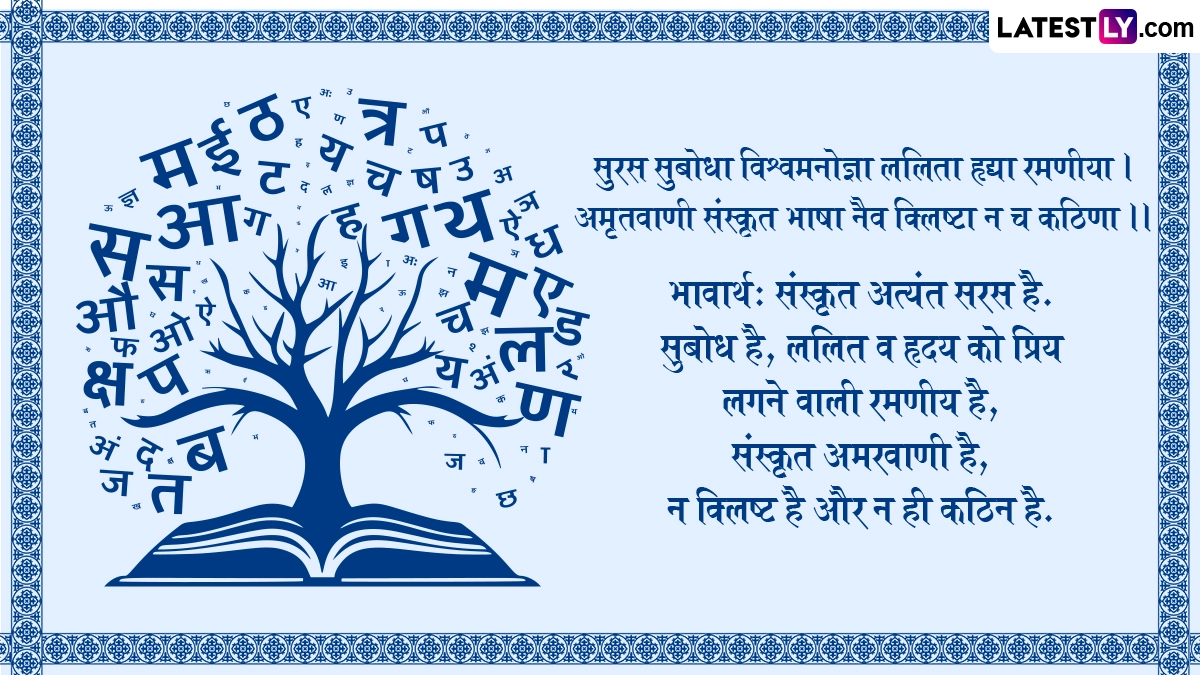 LATESTLY.com
सुरस सुबोधा विश्वमनोज्ञा ललिता हृद्या रमणीया।
अमृतवाणी संस्कृत भाषा नैव क्लिष्टा न च कठिणा।।
भावार्थः संस्कृत अत्यंत सरस है.
सुबोध है, ललित व हृदय को प्रिय
लगने वाली रमणीय है,
संस्कृत अमरवाणी है,
न क्लिष्ट है और न ही कठिन है.
म ई ठ ए त्र प
ट य च ष उ अ
ज्ञ आ ग ह ग थ ऐ ञ
स स म ए ध
औ फ ओ ऐ आ च ल ड
क्ष प य अं ण
अं द ब ज
ज त छ